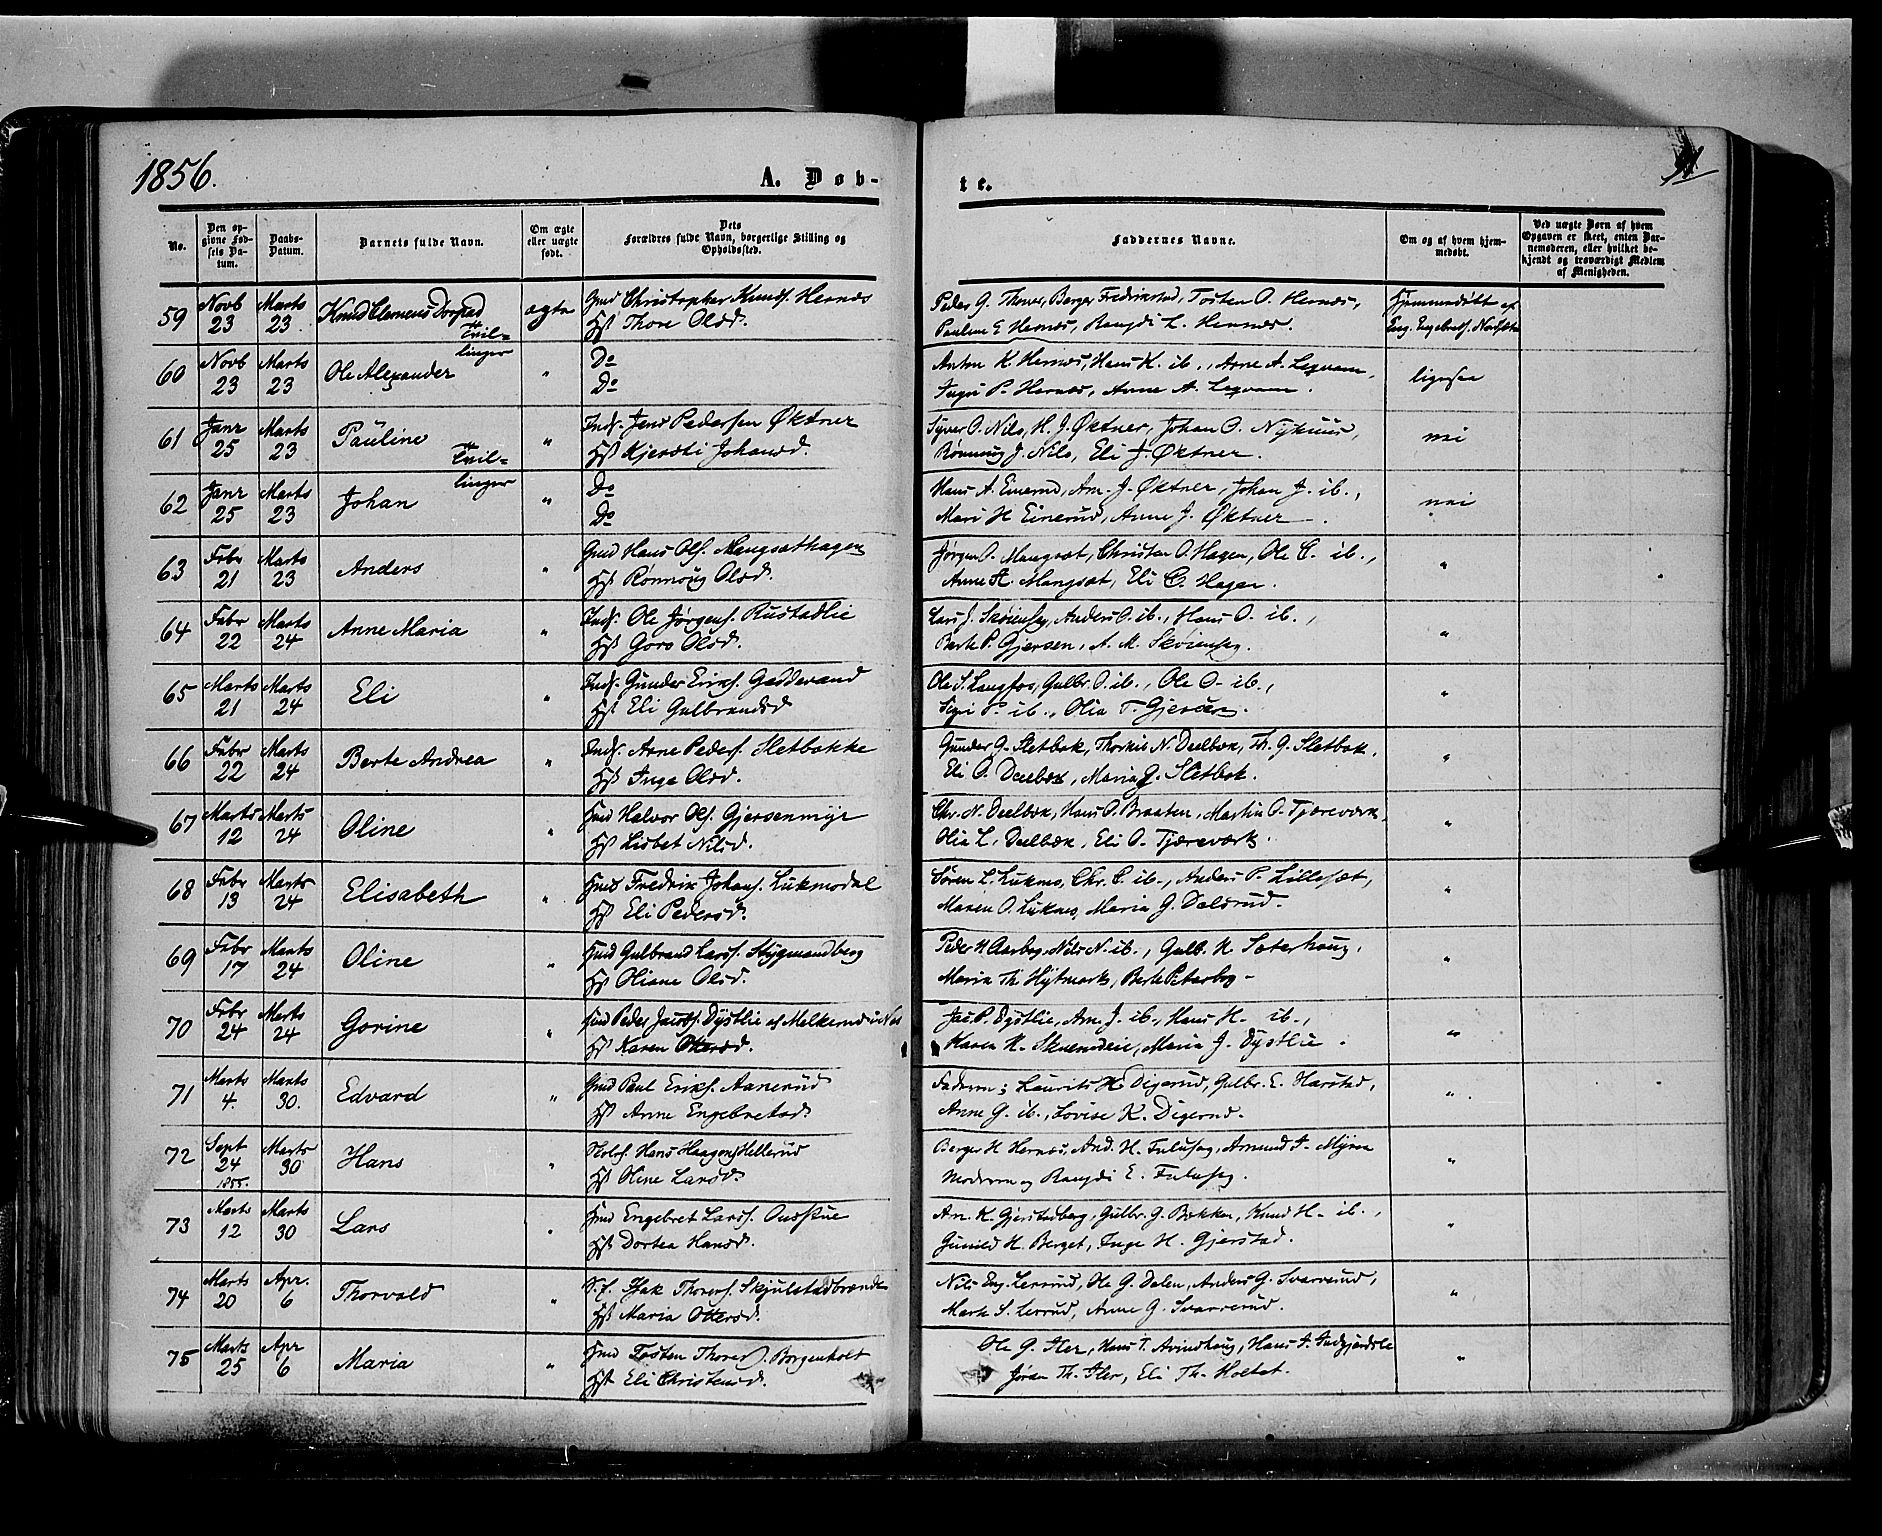 1856.
A. Døb-
te.
No.
Den op-
givne Fød-
sels Da-
tum.
Daabs-
Datum.
Barnets fulde Navn.
Om ægte
eller uægte
født.
Dets
Forældres fulde Navn, borgerlige Stilling og
Opholdssted.
Faddernes Navne.
Om og af hvem hjem-
medøbt.
Ved uægte Børn af hvem
Opgaven er skeet, enten Bar-
nemoderen, eller hvilket be-
kjendt og troværdigt Medlem
af Menigheden.
59 Novb 23 Marts 23 Knud Clemens ægte Gmd Christopher Knuds. Hernæs
Hst Thore Olsd.
Peder G. Berger Fredrikstad, Tosten O. Hernæs,
Pauline E Hernæs, Rangdi L. Hernæs.
Hjemmedøbt af
Eng. Engebrets.
Tvil-
linger
60 Novb 23 Marts 23 Ole Alexander " Do
Do
Anton K. Hernæs, Hans K. ib., Arne A.
P. Hernæs, Anne A.
ligesaa
61 Janr 25 Marts 23 Pauline " Inds. Jens Pedersen Øktner
Hst Kjersti Johansd.
Syver O. Nils, H. J. Øktner, Johan O. Nykuus,
J. Nils, Eli J. Øktner.
nei
Tvil-
linger
62 Janr 25 Marts 23 Johan " Do
Do
Hans A. Einerud, Am. J. Øktner, Johan J. ib.,
Mari H Einerud, Anne J. Øktner.
nei
63 Febr 21 Marts 23 Anders " Gmd Hans Ols. Mangsæthagen
Hst Rønnoug Olsd.
Jørgen O. Mangsæt, Christen O. Hagen, Ole C. ib.,
Anne H. Mangsæt, Eli C. Hagen.
"
64 Febr 22 Marts 24 Anne Maria " Inds. Ole Jørgens. Rustadlie
Hst Goro Olsd.
Lars J. Skøienseg, Anders O. ib., Hans O. ib.,
Berte P. Gjersøen, A. M. Skøienseg.
"
65 Marts 21 Marts 24 Eli " Inds. Gunder Eriks. Gaddevand
Hst Eli Gulbrandsd
Ole S. Langfos, Gulbr. O. ib., Ole O. ib.,
ib., Olia T. Gjersøen.
"
66 Febr 22 Marts 24 Berte Andrea " Inds. Arne Peders. Sletbakke
Hst Inge Olsd.
Gunder G. Sletbak, Thorkil N. Deelbæk, Th. G. Sletbak,
Eli O. Deelbæk, Maria G. Sletbak.
"
67 Marts 12 Marts 24 Oline " Gmd Halvor Ols. Gjersøenmyr
Hst Lisbet Nilsd.
Chr. N. Deelbæk, Hans O. Braaten, Martin O. Tjæreværk,
Olia L. Deelbæk, Eli O. Tjæreværk.
"
68 Febr 13 Marts 24 Elisabeth " Gmd Fredrik Johans. Lukmodal
Hst Eli Pedersd.
Søren L. Lukmo, Chr. C. ib., Anders P. Lillesæt,
Maren O. Lukmo, Maria G. Dalsrud.
"
69 Febr 17 Marts 24 Oline " Gmd Gulbrand Larss. Stygmandberg
Hst Oliane Olsd.
Peder H Aarbog, Nils N. ib., Gulb. K Sæterhaug,
Maria Th. Hytmark, Berte
"
70 Febr 24 Marts 24 Gorine " Gmd Peder Jacobs. Dystlie af Melkerud i Næs
Hst Karen Ottersd.
Jac. P. Dystlie, Am. J. ib., Hans H. ib.,
Karen K. Maria J. Dystlie.
"
71 Marts 4. Marts 30. Edvard " Gmd Paul Eriks. Aanerud
Hst Anne Engebretsd.
Faderen; Laurits H. Digerud, Gulbr. E. Harstad,
Anne G. ib., Lovise K. Digerud.
"
72 Sept 24 1855. Marts 30 Hans " Hans Haagens. Hellerud
Hst Oline Larsd.
Berger H Hernæs, And. H. Fuluseg, Amund F. Myren
Moderen og Rangdi E. Fuluseg.
"
73 Marts 12 Marts 30 Lars " Gmd Engebret Larss. Oustue
Hst Dortea Hansd.
Am. K. Gjerstadberg, Gulbr. G. Bekken, Knud H. ib.,
Gunild H. Berget, Inge H. Gjerstad.
"
74 Marts 20 Apr. 6 Thorvald " S.f. Isak Thorers. Skjulstadbrænde
Hst Maria Ottersd.
Nils Eng. Lerrud, Ole G. Dalen, Anders G. Svarverud,
Marte S. Lerrud, Anne G. Svarverud.
"
75 Marts 25 Apr 6 Maria " Gmd Tosten Thores. Borgenholt
Hst Eli Christensd.
Ole G. Iler, Hans T. Arindhaug, Hans F. Indgjærdsli
Jøran Th. Iler, Eli Th. Holtet.
"